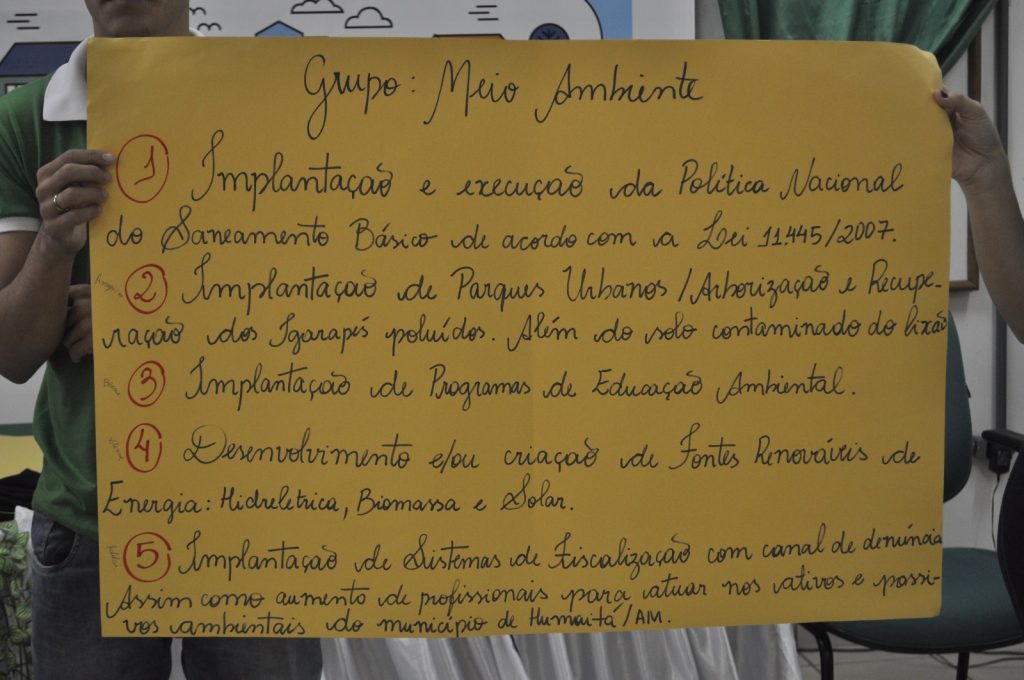 Grupo: Meio Ambiente
1 Implantação e execução da Política Nacional
do Saneamento Básico de acordo com a Lei 11.445/2007.
2 Implantação de Parques Urbanos/Arborização e Recupe-
ração dos Igarapés poluídos. Além do solo contaminado do lixão
3 Implantação de Programas de Educação Ambiental.
4 Desenvolvimento e/ou criação de Fontes Renováveis de
Energia: Hidreletrica, Biomassa e Solar.
5 Implantação de Sistemas de Fiscalização com canal de denúncia
Assim como aumento de profissionais para atuar nos ativos e passi-
vos ambientais do município de Humaitá/AM.